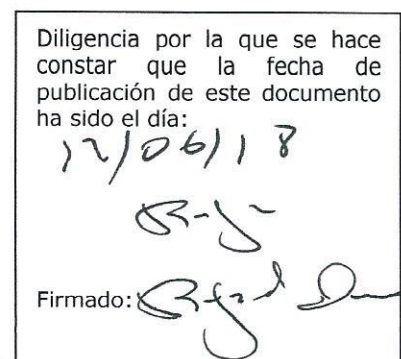 Diligencia por la que se hace
constar que la fecha de
publicación de este documento
ha sido el día:
12/06/18
Firmado: